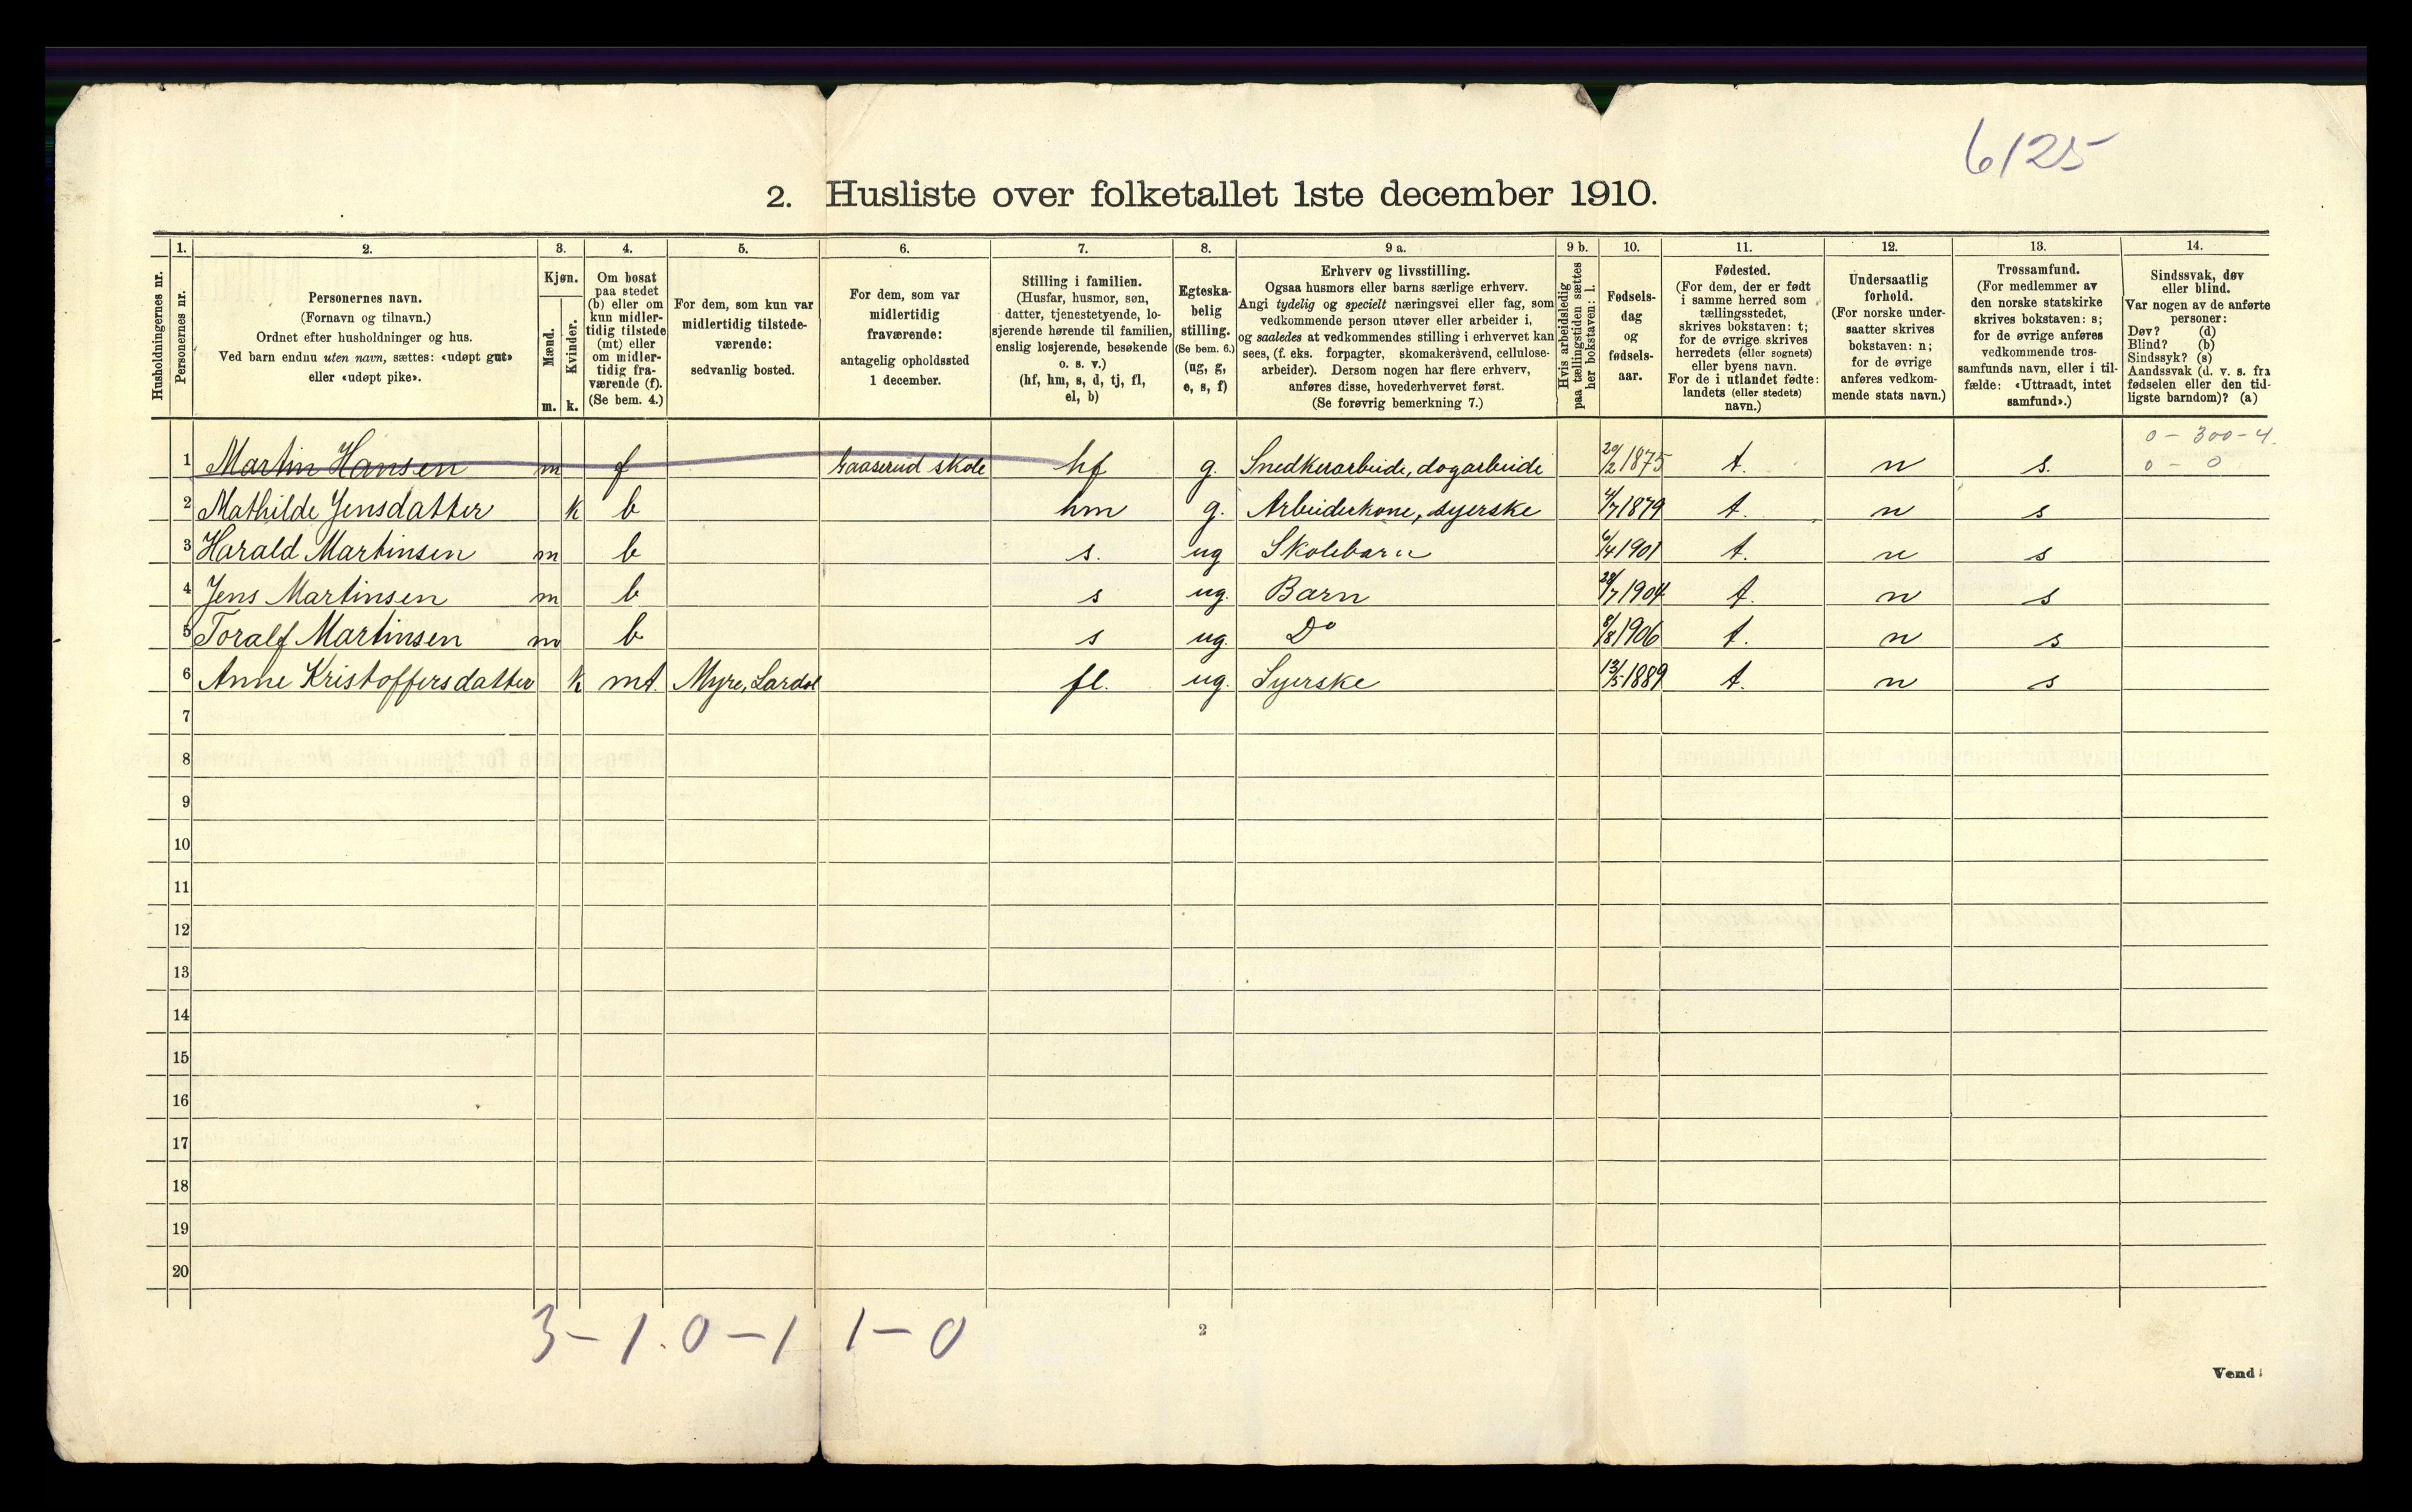 6125
2. Husliste over folketallet 1ste december 1910.
1. 2. 3. 4. 5. 6. 7. 8. 9 a. 9 b. 10. 11. 12. 13. 14.
Husholdningernes nr.
Personernes nr.
Personernes navn.
(Fornavn og tilnavn.)
Ordnet efter husholdninger og hus.
Ved barn endnu uten navn, sættes: «udøpt gut»
eller «udøpt pike».
Kjøn.
Mænd.
m.
Kvinder.
k.
Om bosat
paa stedet
(b) eller om
kun midler-
tidig tilstede
(mt) eller
om midler-
tidig fra-
værende (f).
(Se bem. 4.)
For dem, som kun var
midlertidig tilstede-
værende:
sedvanlig bosted.
For dem, som var
midlertidig
fraværende:
antagelig opholdssted
1 december.
Stilling i familien.
(Husfar, husmor, søn,
datter, tjenestetyende, lo-
sjerende hørende til familien,
enslig losjerende, besøkende
o. s. v.)
(hf, hm, s, d, tj, fl,
el, b)
Egteska-
belig
stilling.
(Se bem. 6.)
(ug, g,
e, s, f)
Erhverv og livsstilling.
Ogsaa husmors eller barns særlige erhverv.
Angi tydelig og specielt næringsvei eller fag, som
vedkommende person utøver eller arbeider i,
og saaledes at vedkommendes stilling i erhvervet kan
sees, (f. eks. forpagter, skomakersvend, cellulose-
arbeider). Dersom nogen har flere erhverv,
anføres disse, hovederhvervet først.
(Se forøvrig bemerkning 7.)
Hvis arbeidsledig
paa tællingstiden sættes
her bokstaven: l.
Fødsels-
dag
og
fødsels-
aar.
Fødested.
(For dem, der er født
i samme herred som
tællingsstedet,
skrives bokstaven: t;
for de øvrige skrives
herredets (eller sognets)
eller byens navn.
For de i utlandet fødte:
landets (eller stedets)
navn.)
Undersaatlig
forhold.
(For norske under-
saatter skrives
bokstaven: n;
for de øvrige
anføres vedkom-
mende stats navn.)
Trossamfund.
(For medlemmer av
den norske statskirke
skrives bokstaven: s;
for de øvrige anføres
vedkommende tros-
samfunds navn, eller i til-
fælde: «Uttraadt, intet
samfund».)
Sindssvak, døv
eller blind.
Var nogen av de anførte
personer:
Døv? (d)
Blind? (b)
Sindssyk? (s)
Aandssvak (d. v. s. fra
fødselen eller den tid-
ligste barndom)? (a)
0 - 300 - 4.
1 Martin Hansen m f skole hf g. Snedkerarbeide, dagarbeide 20/2 1875 t. n s. 0 - 0
2 Mathilde Jensdatter k b hm g. Arbeiderkone, syerske 4/7 1879 t. n s
3 Harald Martinsen m b s. ug Skolebarn 6/4 1901 t. n s
4 Jens Martinsen m b s ug. Barn 28/7 1904 t. n s
5 Toralf Martinsen m b s ug. Do 8/8 1906 t. n s
6 Anne Kristoffersdatter k mt. Myre, Lardal fl. ug. Syerske 13/5 1889 t. n s
7
8
9
10
11
12
13
14
15
16
17
18
19
20
3 - 1. 0 - 1 1 - 0
2
Vend!